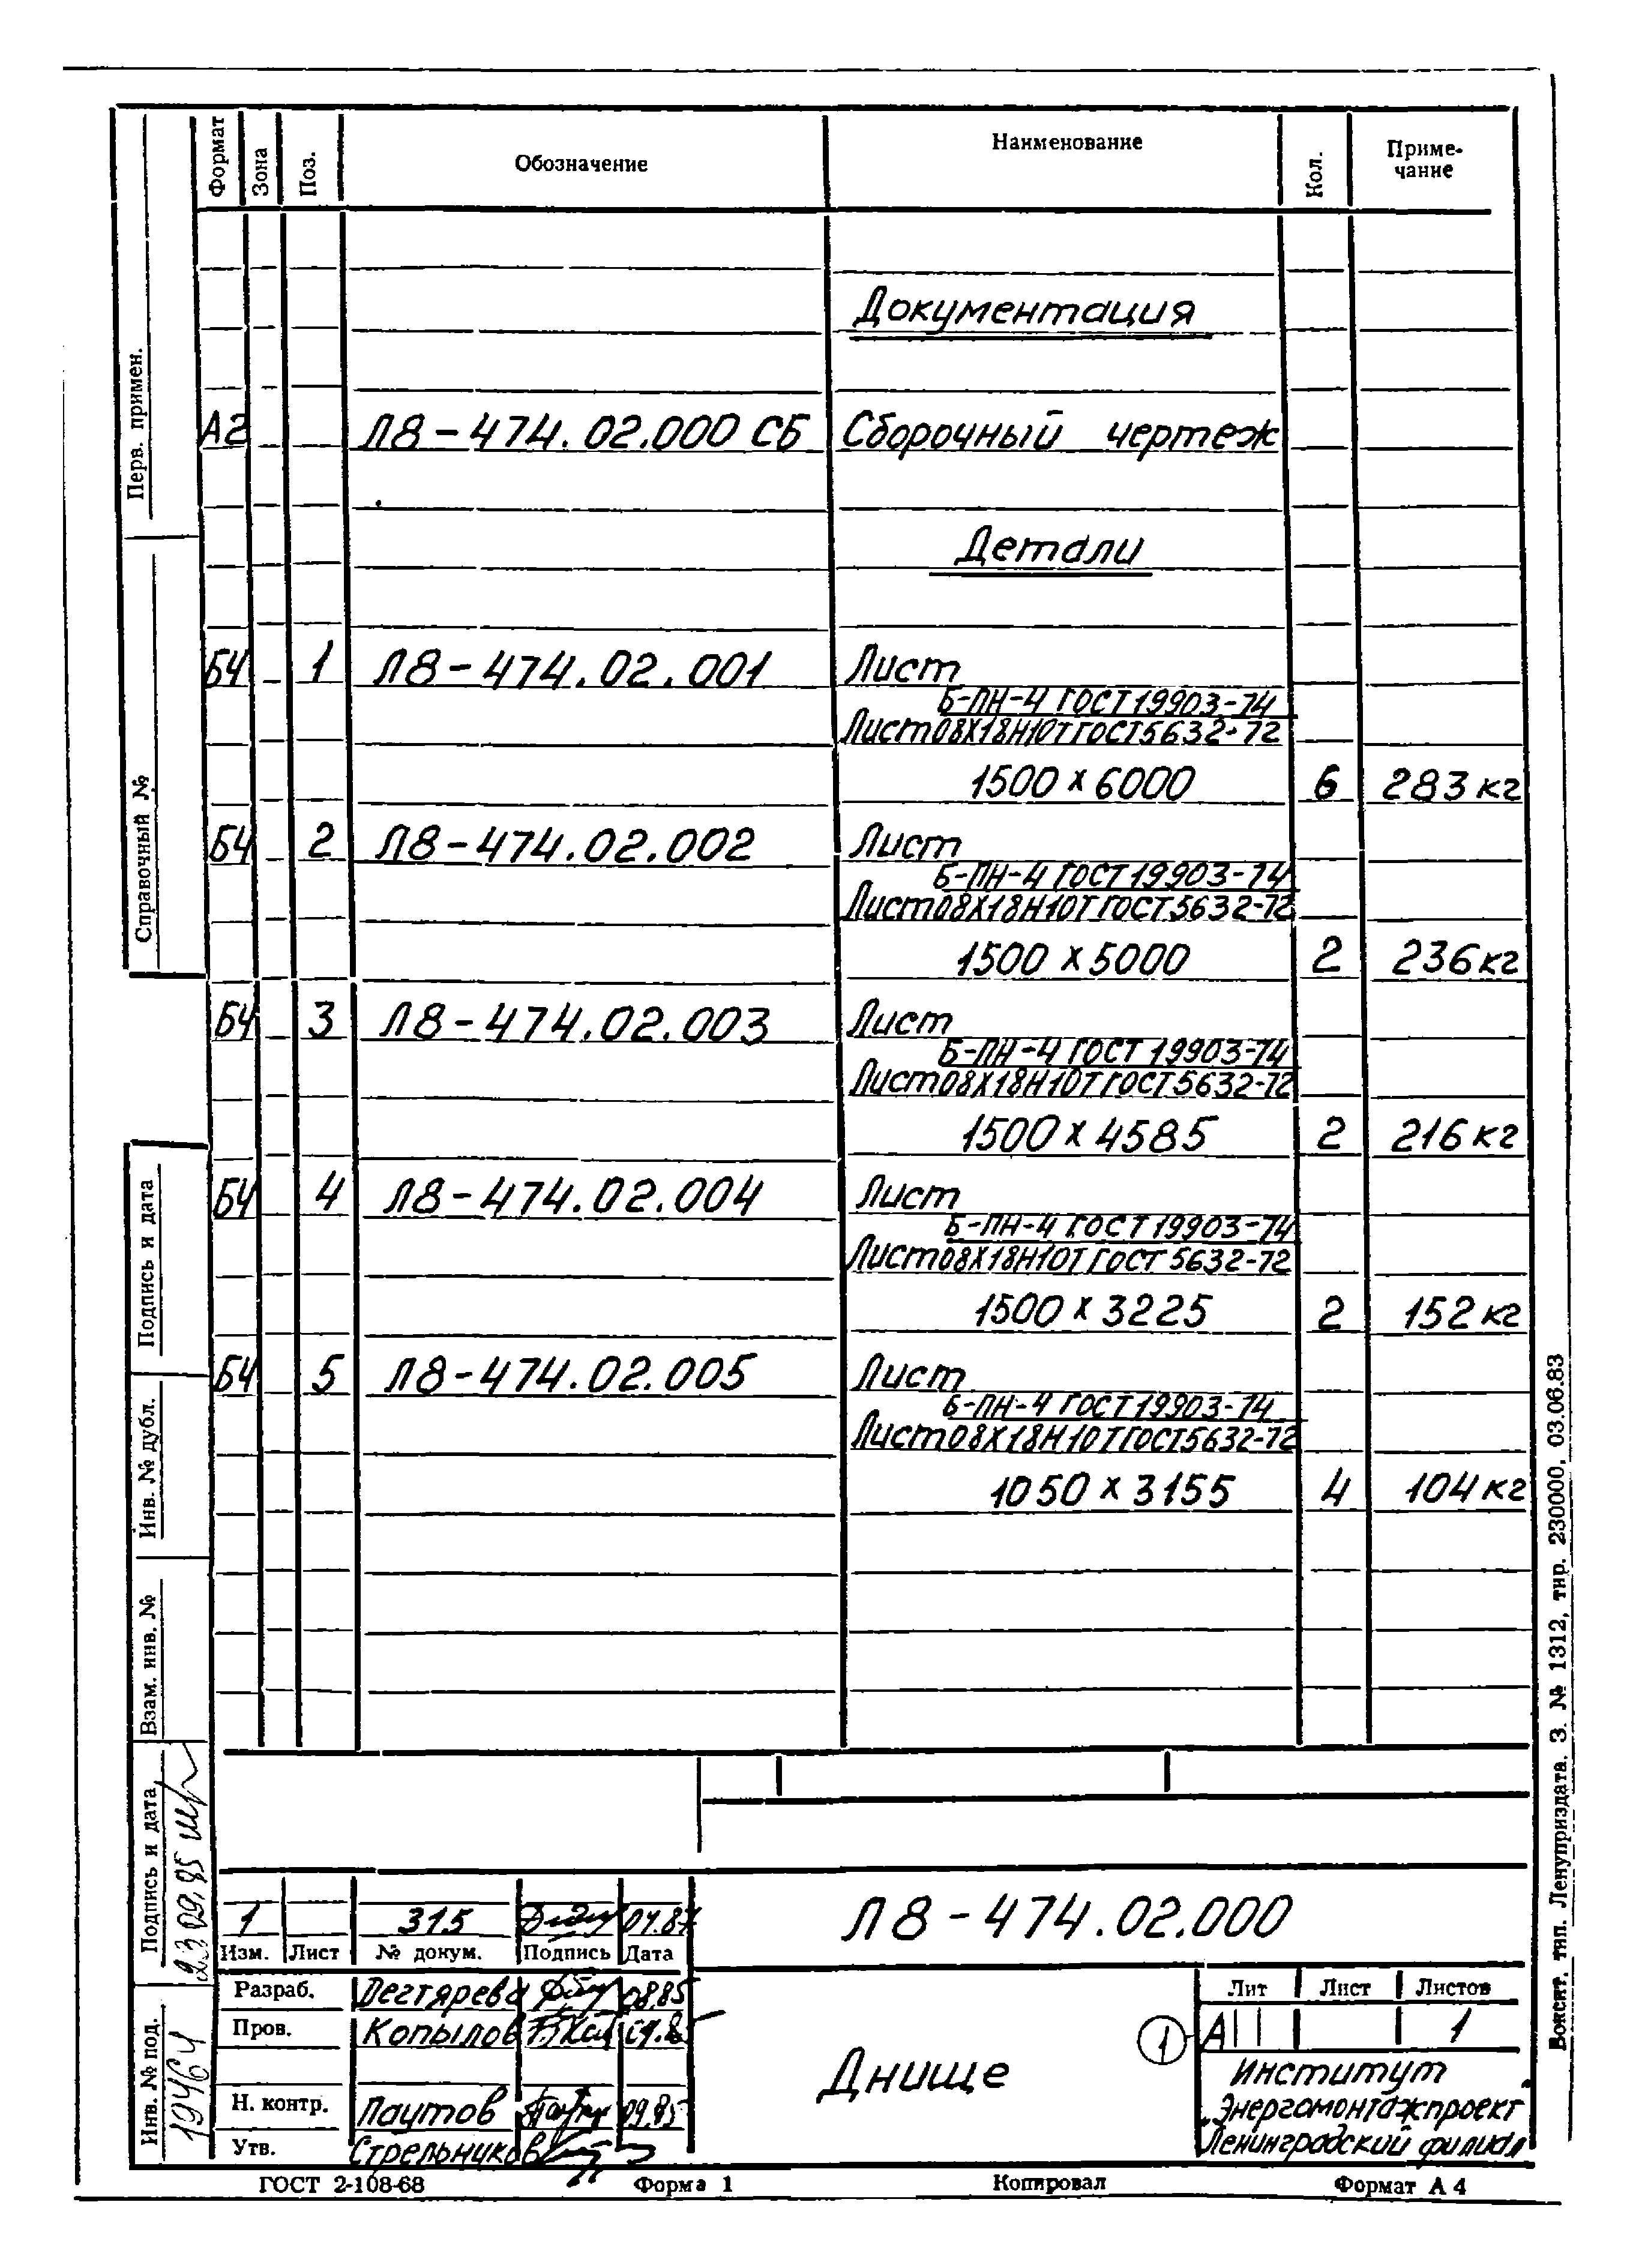 Формат Зона Поз. Обозначение Наименование Кол. Приме-
чание
Документация
А2 Л8-474.02.000 СБ Сборочный чертеж
Детали
БЧ 1 Л8-474.02.001 Лист
Б-ПН-4 ГОСТ 19903-74
Лист 08Х18Н10Т ГОСТ 5632-72
1500 х 6000 6 283 кг
БЧ 2 Л8-474.02.002 Лист
Б-ПН-4 ГОСТ 19903-74
Лист 08Х18Н10Т ГОСТ 5632-72
1500 х 5000 2 236 кг
БЧ 3 Л8-474.02.003 Лист
Б-ПН-4 ГОСТ 19903-74
Лист 08Х18Н10Т ГОСТ 5632-72
1500 х 4585 2 216 кг
БЧ 4 Л8-474.02.004 Лист
Б-ПН-4 ГОСТ 19903-74
Лист 08Х18Н10Т ГОСТ 5632-72
1500 х 3225 2 152 кг
БЧ 5 Л8-474.02.005 Лист
Б-ПН-4 ГОСТ 19903-74
Лист 08Х18Н10Т ГОСТ 5632-72
1050 х 3155 4 104 кг
Перв. примен.
Справочный №
Подпись и дата
Инв. № дубл.
Взам. инв. №
Подпись и дата
23.09.85
Инв. № под.
19464
1 315 04.87
Изм. Лист № докум. Подпись Дата
Л8-474.02.000
Разраб. Дегтярева 08.85
Пров. Копылов
Н. контр. Паутов 09.85
Утв. Стрельников
Днище
1
Лит Лист Листов
А 1
Институт
"Энергомонтажпроект"
Ленинградский филиал
ГОСТ 2-108-68 Форма 1 Копировал Формат А 4
тип. Ленуприздата. З. № 1312, тир. 230000, 03.06.83